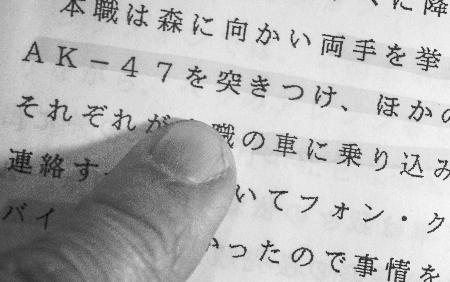 くに降
本職は森に向かい両手を挙
ＡＫ－４７を突きつけ、ほかの
それぞれが 職の車に乗り込み
連絡す いてフォン・ク
バイ かったので事情を